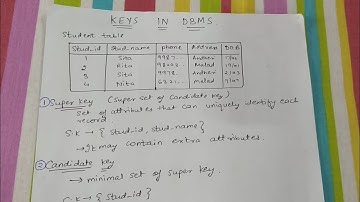 KEYS IN DBMS
Student table
Stud_id Stud_name phone Address DOB
1 Sita 9987... Andheri
2 Rita Malad
3 Sita 9978.. Andheri
4 Nita Malad
① Super key (Super set of Candidate key)
Set of attributes that can uniquely identify each
record
S.K → { stud_id, stud_name }
→ It may contain extra attributes.
② Candidate key
→ minimal set of super key.
C.K → { Stud_id }